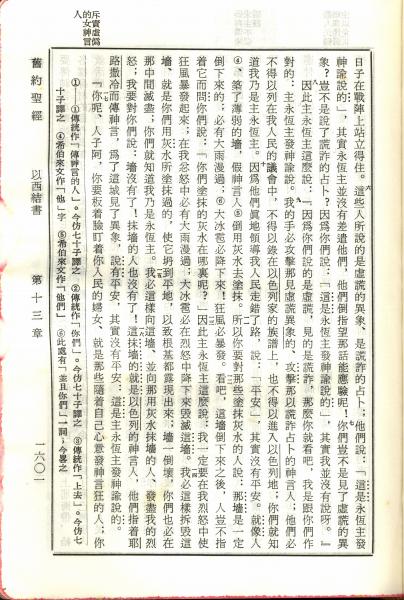 斥責虛偽
的女神言
人
日子在戰陣上站立得住。這些人所說的是虛謊的異象、是謊詐的占卜、他們說：「這是永恆主發
神諭說的」，其實永恆主並沒有差遣他們，他們倒指望那話能應驗呢！你們豈不是見了虛謊的異
象？豈不是說了謊詐的占卜？因爲你們說：「這是永恆主發神諭說的」，其實我並沒有說呀。』
因此主永恆主這麼說：『因爲你們說的是虛謊，見的是謊詐，那麼你就看吧，我是跟你們作
對的：主永恆主發神諭說。我的手必攻擊那見虛謊異象的、攻擊那以謊詐占卜的神言人；他們必
不得以列在我人民的議會中，不得以錄在以色列家的族譜上，也不得以進入以色列地；你們就知
道我乃是主永恆主。因爲他們眞地領導我人民走錯了路，說：「平安」，其實沒有平安。就像人
④、築了薄弱的牆，假神言人⑤倒用灰水去塗抹。所以你要對那些塗抹灰水的人說：那牆是一定
倒下來的；必有大雨漫過；⑥大冰雹必降下來！狂風必暴發。看吧，這牆倒下來之後，人豈不指
着它而問你們說：「你們塗抹的灰水在哪裏呢？」因此主永恆主這麼說：我一定要在我烈怒中使
狂風暴發起來；在我忿怒中必有大雨漫過；大冰雹必在烈怒中降下來毀滅這牆。我必這樣拆毀這
牆，就是你們用灰水所塗抹過的，使它坍到平地，以致根基都露現出來；牆一倒壞，你們也必在
那中間滅盡；你們就知道我乃是永恆主。我必這樣向這牆，並向那用灰水抹牆的人，發盡我的烈
怒；我要對你們說：牆沒有了！抹牆的人也沒有了！這抹牆的就是以色列的神言人，他們指着耶
路撒冷而傳神言，爲了這城見了異象，說有平安，其實沒有平安：這是主永恆主發神諭說的。
『你呢、人子阿，你要板着臉盯着你人民的婦女、就是那些隨着自己心意發神言狂的人；你
①傳統作「傳神言的人」。今仿七十子譯之 ②傳統作「你們」。今仿七十子譯之 ③傳統作「上去」。今仿七
十子譯之 ④希伯來文作「他」字 ⑤希伯來文作「他們」 ⑥此處有「並且你們」一詞，今畧之
舊約聖經 以西結書 第十三章 一六〇一